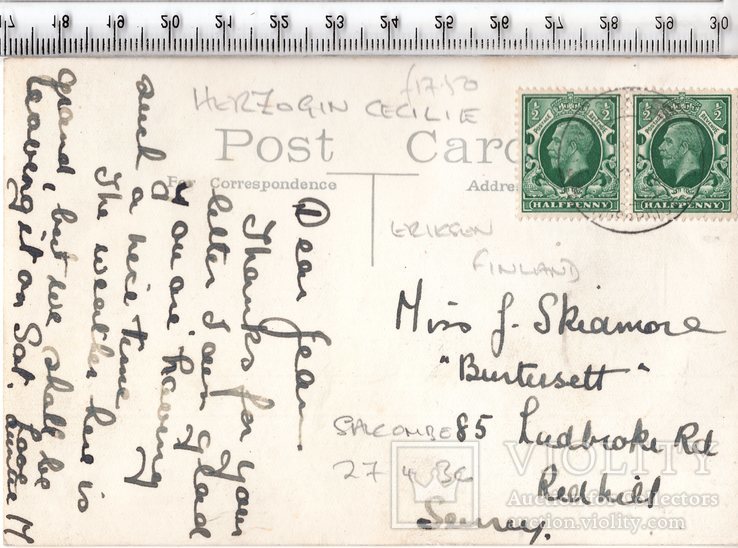 17 18 19 20 21 22 23 24 25 26 27 28 29 30
£17.50
HERZOGIN CECILIE
Post Card
For Correspondence
Address
1/2 1/2
POSTAGE REVENUE
1/2 1/2
HALFPENNY
HALFPENNY
ERIKSEN
FINLAND
Dear Jean
Thanks for your
letter I am glad
you are having
such a nice time
The weather here is
grand, but we shall be
leaving it on Sat. Love
Auntie M
Miss J. Skidmore
"Burtersett"
85 Ladbroke Rd
Redhill
Surrey.
SALCOMBE
VIOLITY
Auction for Collectors
auction.violity.com